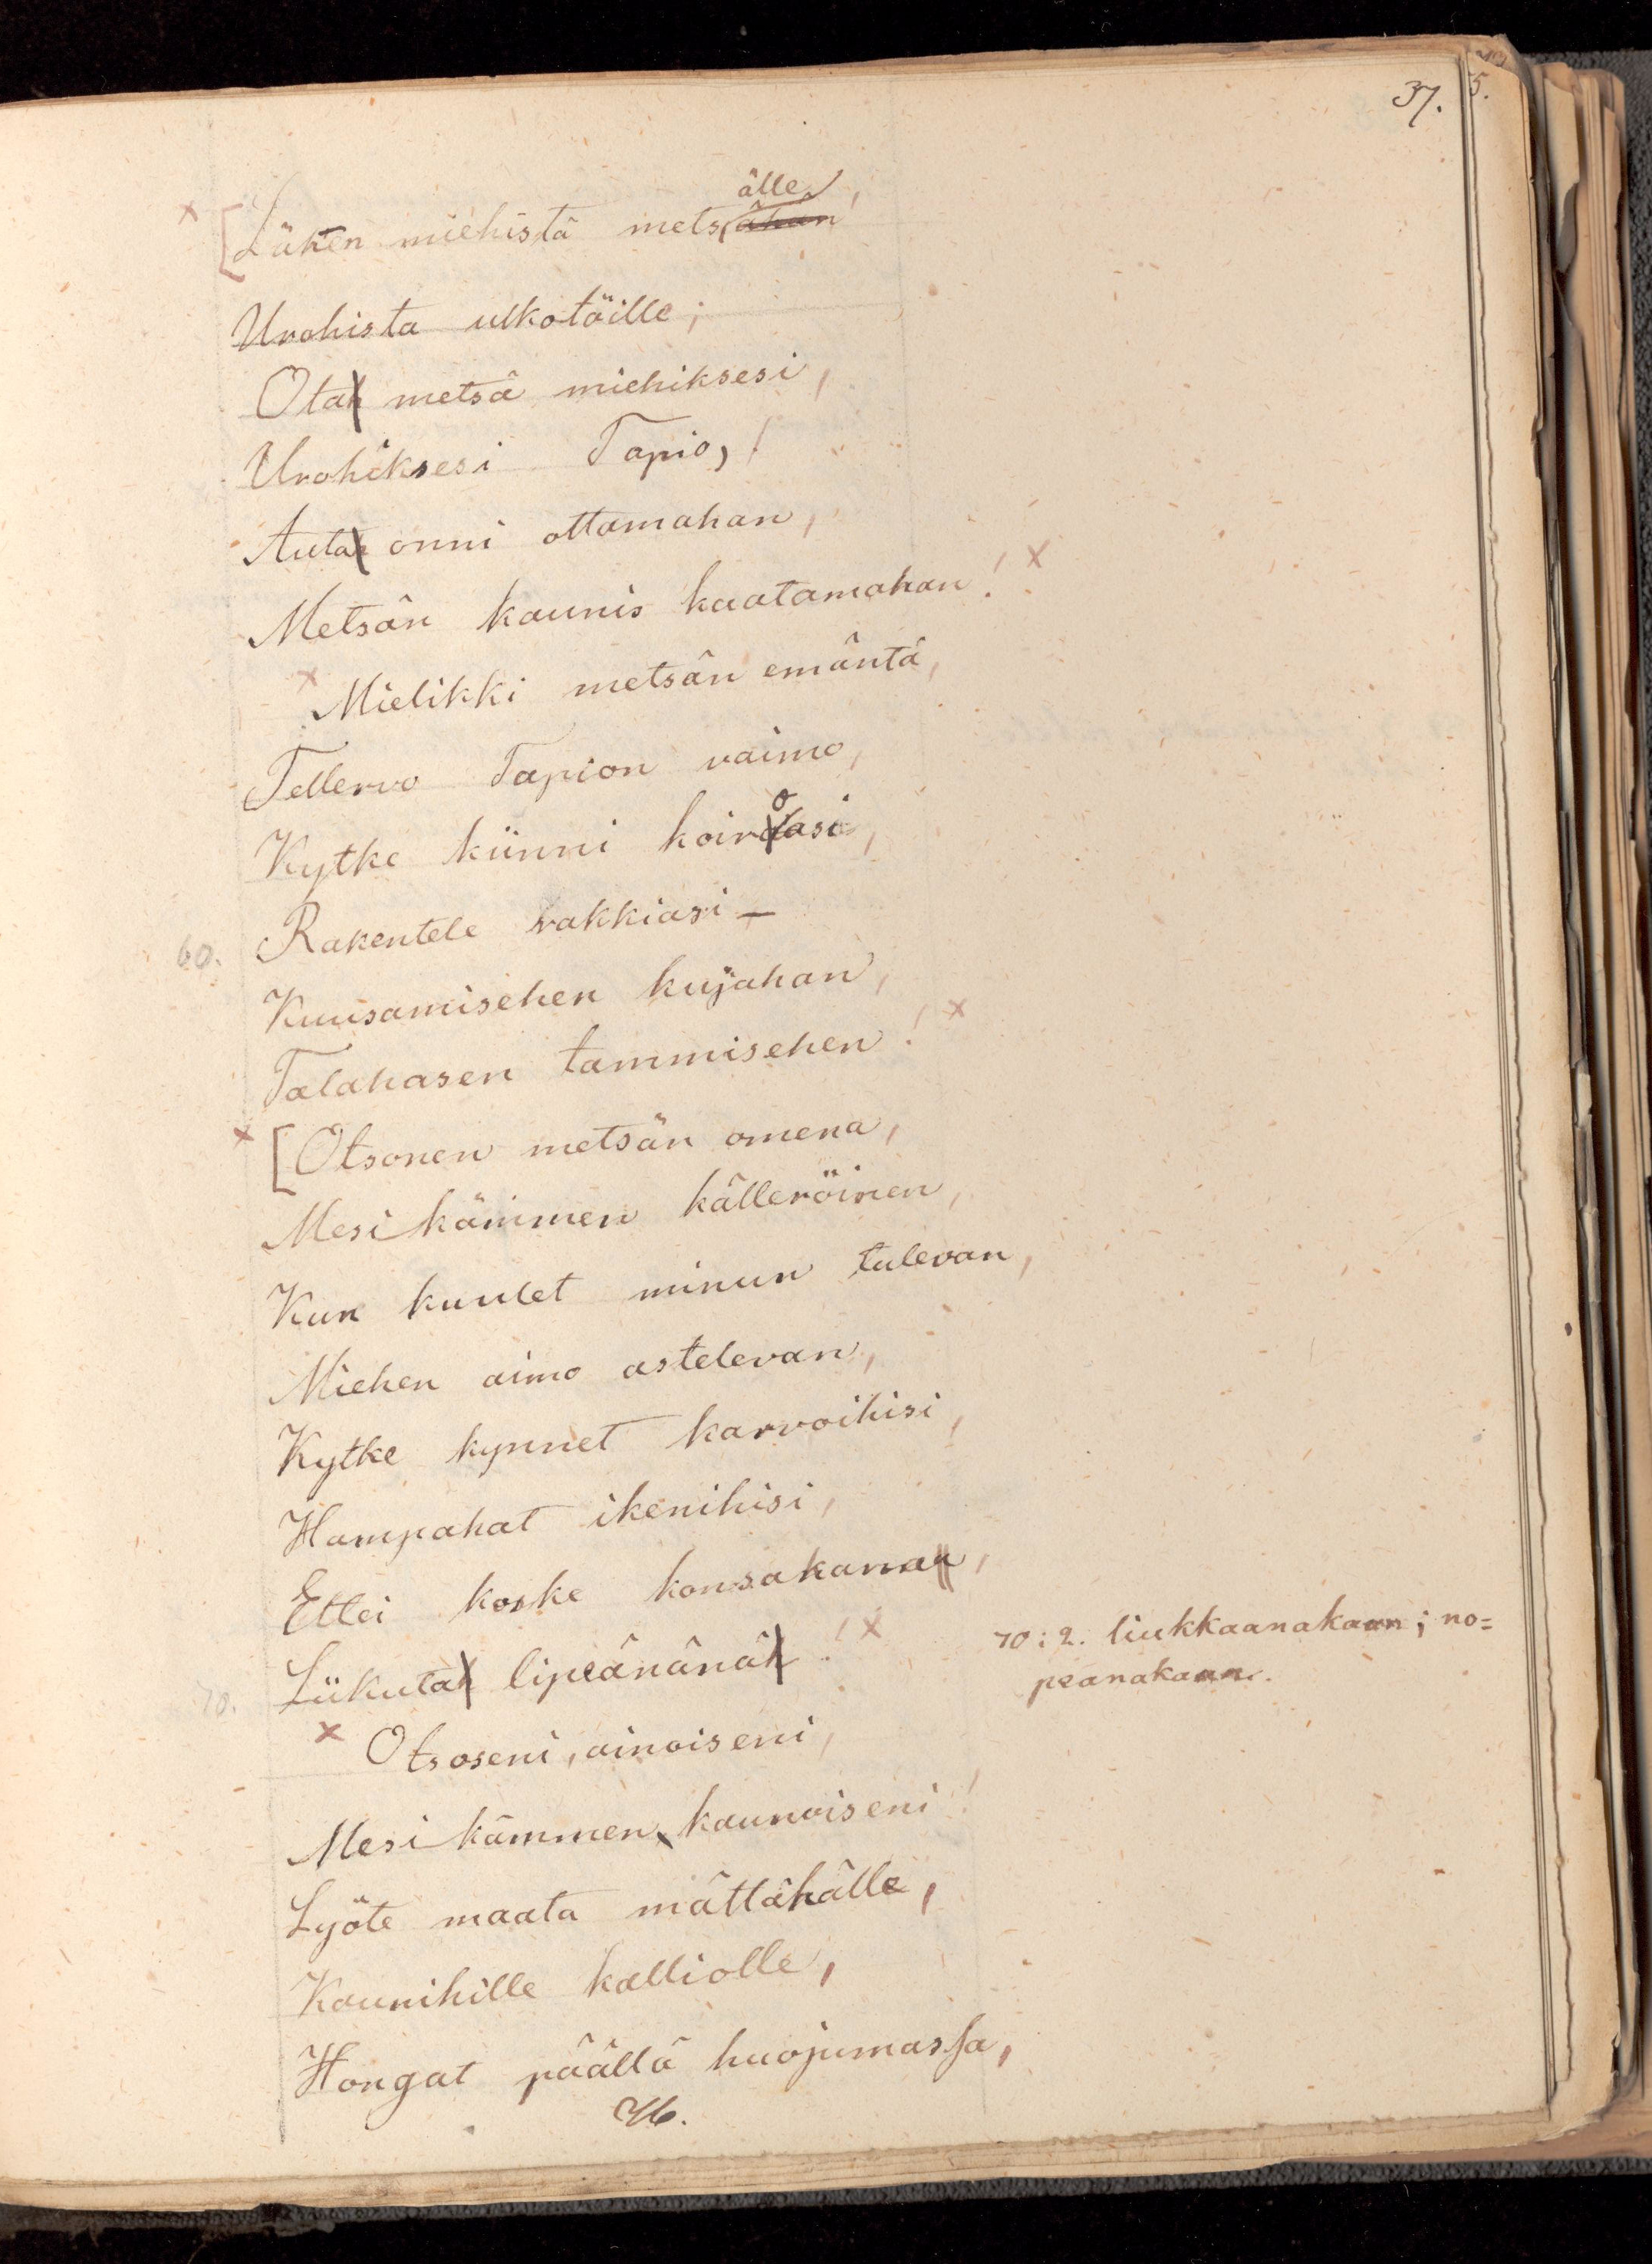 37.
5.
älle
[Läken miehistä metsähän,
Urohista ulkotöille;
Otak metsä miehiksesi,
Urohiksesi Tapio,!
Autak onni ottamahan,
Metsän kaunis kaatamahan! x
x Mielikki metsän emäntä,
Tellervo Tapion vaimo,
o
Kytke kiinni koiraasi,
60. Rakentele rakkiasi –
Kuusamisehen kujahan,
Talahasen tammisehen! x
x [Otsonen metsän omena,
Mesikämmen källeröinen,
Kun kuulet minun tulevan,
Miehen aimo astelevan,
Kytke kynnet karvoihisi,
Hampahat ikenihisi,
Ettei koske konsakanaa,
70. Liikutak lipeänänäk! x
70: 2. liukkaanakaan; no=
peanakaan.
x Otsoseni, ainoiseni,
Mesikämmen, kaunoiseni!
Lyöte maata mättähälle,
Kaunihille kalliolle,
Hongat päällä huojumassa,
76.